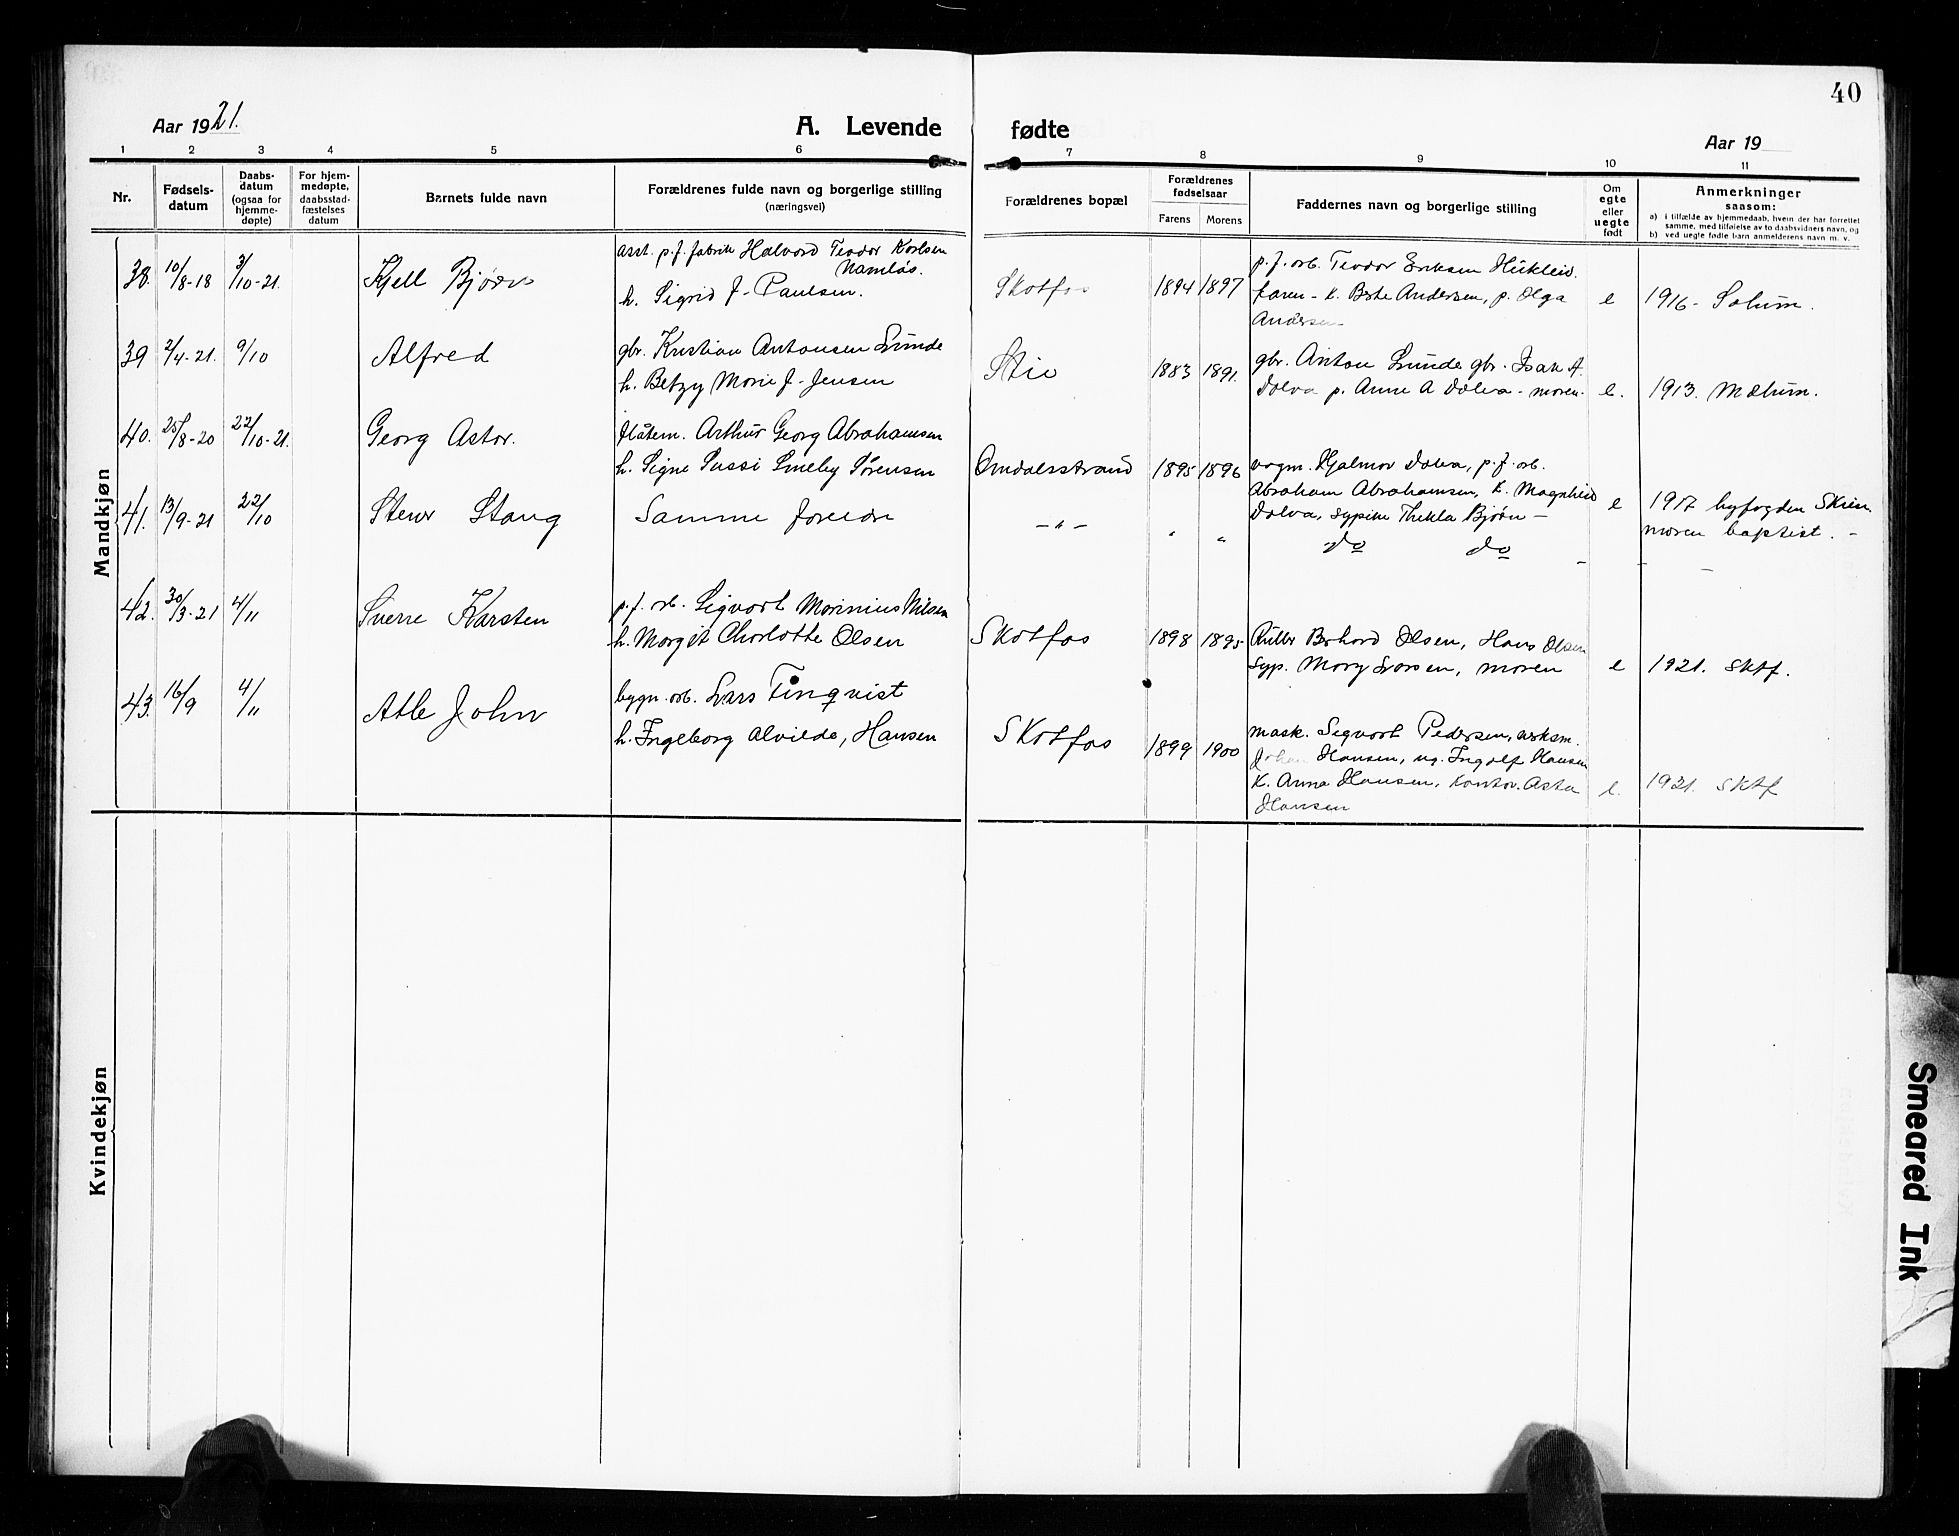 40
Aar 1921.
A. Levende fødte
Aar 19
1 2 3 4 5 6 7 8 9 10 11
Nr.
Fødsels-
datum
Daabs-
datum
(ogsaa for
hjemme-
døpte)
For hjem-
medøpte,
daabsstad-
fæstelses
datum
Barnets fulde navn
Forældrenes fulde navn og borgerlige stilling
(næringsvei)
Forældrenes bopæl
Forældrenes
fødselsaar
Farens Morens
Faddernes navn og borgerlige stilling
Om
egte
eller
uegte
født
Anmerkninger
saasom:
a) i tilfælde av hjemmedaab, hvem der har forrettet
samme, med tilføielse av to daabsvidners navn, og
b) ved uegte fødte barn anmelderens navn m. v.
Mandkjøn
38. 10/8-18 3/10-21. Kjell Bjørn
asst. p.f. fabrik Halvord Teodor Karlsen
Namløs.
h. Sigrid f. Paulsen.
Skotfos 1894 1897
p.f. arb. Teodor Eriksen Hukleiv.
faren - k. Berte Andersen, p. Olga
Andersen
e 1916 - Solum.
39 2/4-21. 9/10 Alfred
gbr. Kristian Antonsen Lunde
h. Betzy Marie f. Jensen
Stie 1883 1891.
gbr. Anton Lunde gbr. Isak A.
Dolva p. Anne A Dolva - moren.
e. 1913. Mælum.
40. 25/8-20 22/10-21. Georg Astor.
Arthur Georg Abrahamsen
h. Signe Sussi Smeby Sørensen
Omdalsstrand 1895 1896
vogm. Hjalmar Dolva, p.f. arb.
Abraham Abrahamsen, k. Magnhild
Dolva, sypike Thekla Bjørn -
e 1917 byfogden Skien.
moren baptist. -
41. 13/9-21 22/10 Stener Stang
Samme foreldre
- " - " "
do do - - -
42. 30/3-21 4/11 Sverre Karsten
p.f. arb. Sigvart Marinius Nilsen
h. Margit Charlotte Olsen
Skotfos 1898 1895
Rullr Berhard Olsen, Hans Olsen
syp. Mary Larsen, moren
e 1921. Sktf.
43. 16/9 4/11 Atle John
bygn. arb. Lars Tinqvist
h. Ingeborg Alvilde, Hansen
Skotfos 1899 1900
mask. Sigvart Pedersen, verksm.
Johan Hansen, ug. Ingolf Hansen
k. Anna Hansen, kontor. Asta
Hansen
e. 1921. Sktf
Kvindekjøn
Smeared Ink